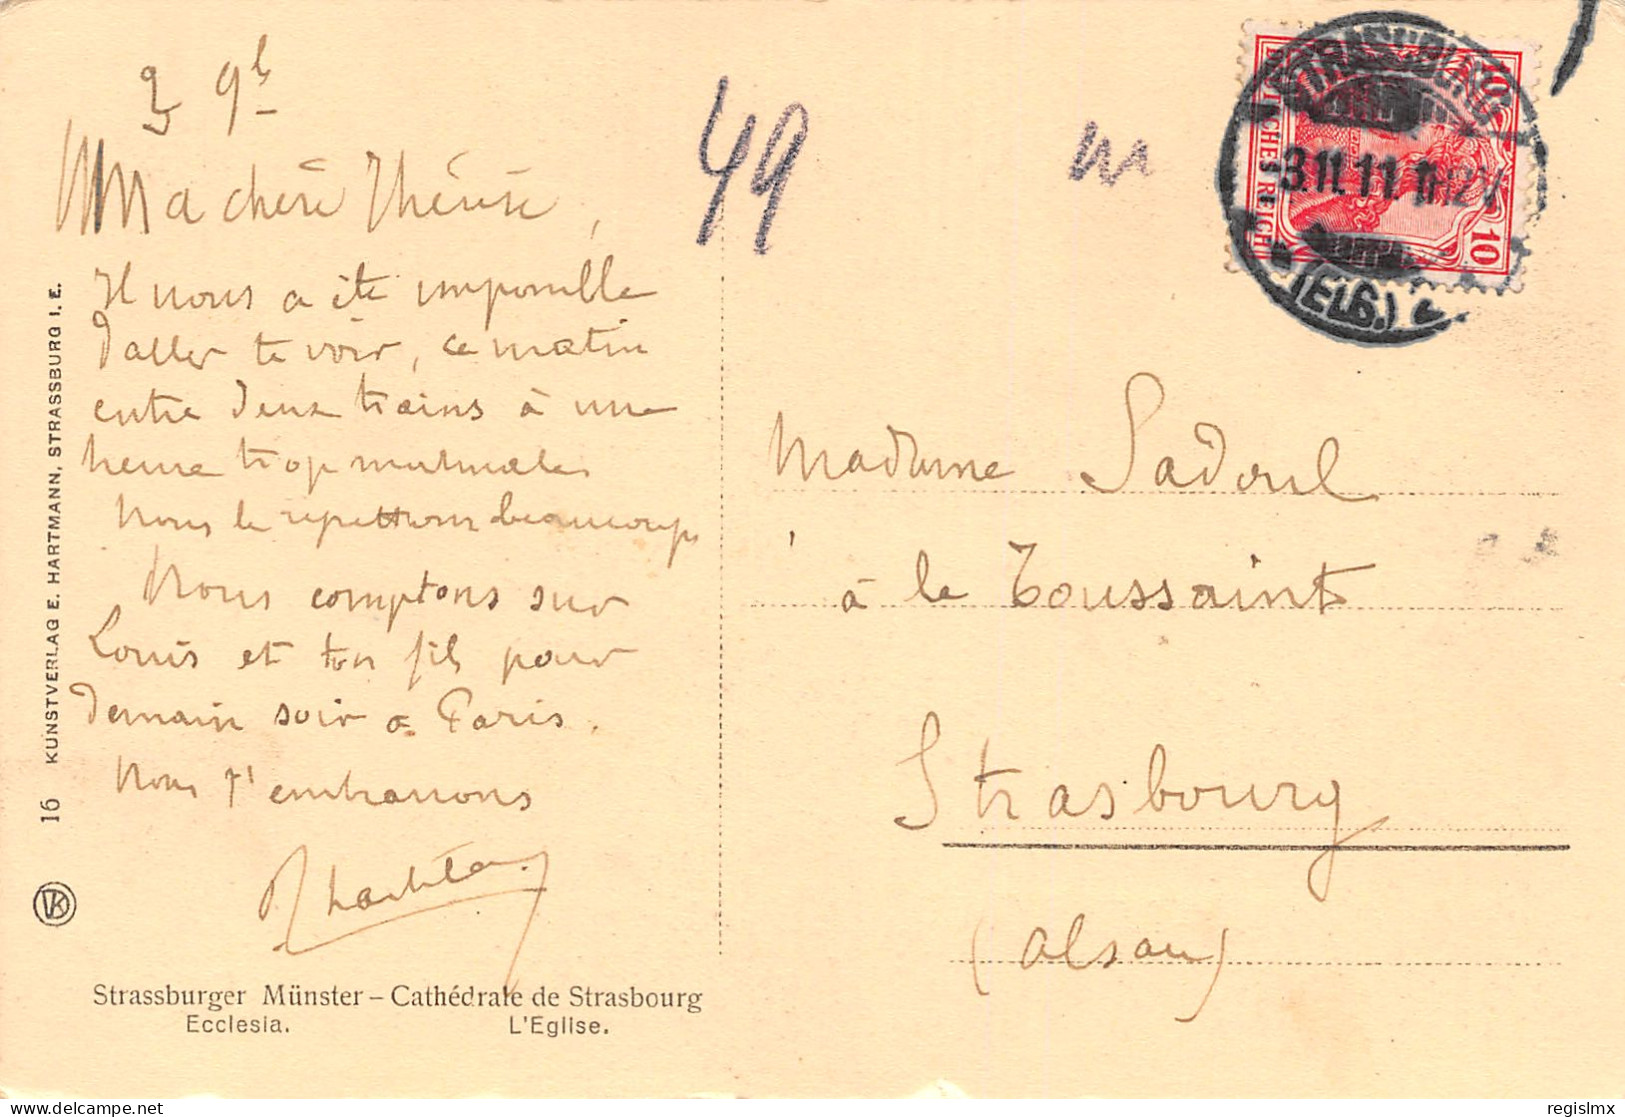 3 9b
Ma chère Thérèse,
Il nous a été impossible
d'aller te voir, ce matin
entre deux trains à une
heure trop matinale
Nous le regrettons beaucoup
Nous comptons sur
Louis et ton fils pour
demain soir à Paris.
Nous t'embrassons
49
Madame Sadoul
à la Toussaint
Strasbourg
(Alsace)
STRASSBURG
3.11.11.11-12V
(ELS.)
DEUTSCHES REICH
10
10
16 KUNSTVERLAG E. HARTMANN, STRASSBURG I. E.
VK
Strassburger Münster – Cathédrale de Strasbourg
Ecclesia. L'Eglise.
regislmx